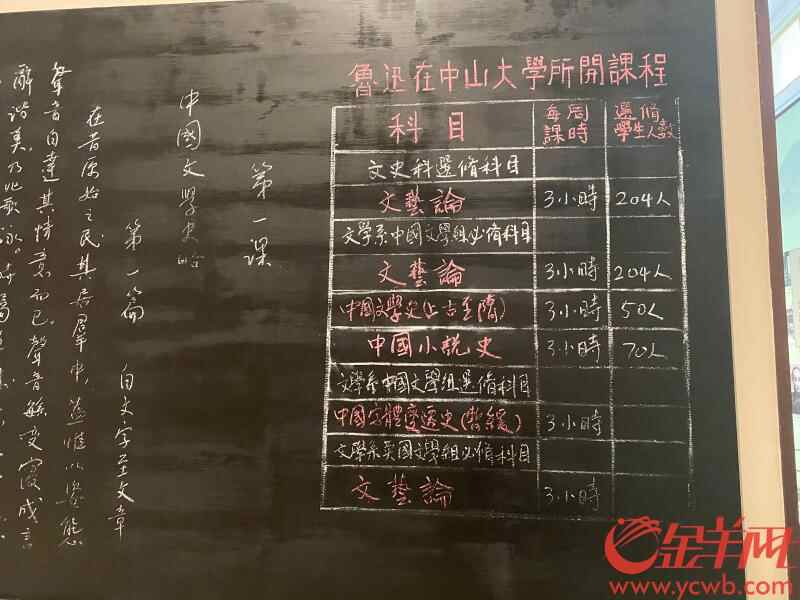 魯迅在中山大學所開課程
科目 每周課時 選脩學生人數
文史科選脩科目
文藝論 3小時 204人
文學系中國文學組必脩科目
文藝論 3小時 204人
中國文學史(上古至隋) 3小時 50人
中國小說史 3小時 70人
文學系中國文學組選脩科目
中國字體變遷史(暫緩) 3小時
文學系英國文學組必脩科目
文藝論 3小時
第一課
中國文學史略
第一篇 自文字至文章
在昔原始之民其居羣中,蓋惟以姿態
聲音自達其情意而已。聲音繁變寖成言
辭諧美,乃兆歌詠。
金羊网
www.ycwb.com